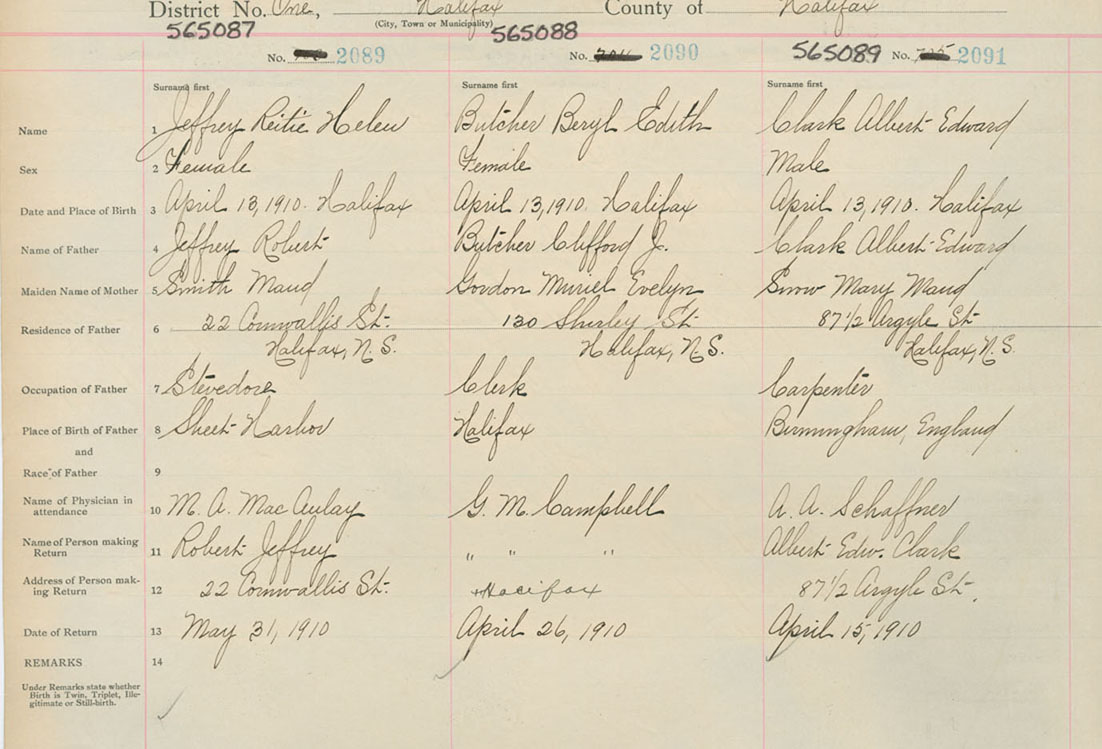 District No. One, Halifax County of Halifax
(City, Town or Municipality)
565087 565088
No. 2089 No. 2090 565089 No. 2091
Surname first Surname first Surname first
Name 1 Jeffrey Reitie Helen Butcher Beryl Edith Clark Albert Edward
Sex 2 Female Female Male
Date and Place of Birth 3 April 13, 1910. Halifax April 13, 1910. Halifax April 13, 1910. Halifax
Name of Father 4 Jeffrey Robert Butcher Clifford J. Clark Albert Edward
Maiden Name of Mother 5 Smith Maud Gordon Muriel Evelyn Snow Mary Maud
Residence of Father 6 22 Cornwallis St. 130 Shirley St 87 1/2 Argyle St
Halifax, N.S. Halifax, N.S. Halifax, N.S.
Occupation of Father 7 Stevedore Clerk Carpenter
Place of Birth of Father 8 Sheet Harbor Halifax Birmingham, England
and
Race of Father 9
Name of Physician in
attendance 10 M. A. MacAulay G. M. Campbell A. A. Schaffner
Name of Person making
Return 11 Robert Jeffrey " " " Albert Edw. Clark
Address of Person mak-
ing Return 12 22 Cornwallis St. Halifax 87 1/2 Argyle St.
Date of Return 13 May 31, 1910 April 26, 1910 April 15, 1910
REMARKS 14
Under Remarks state whether
Birth is Twin, Triplet, Ille-
gitimate or Still-birth.